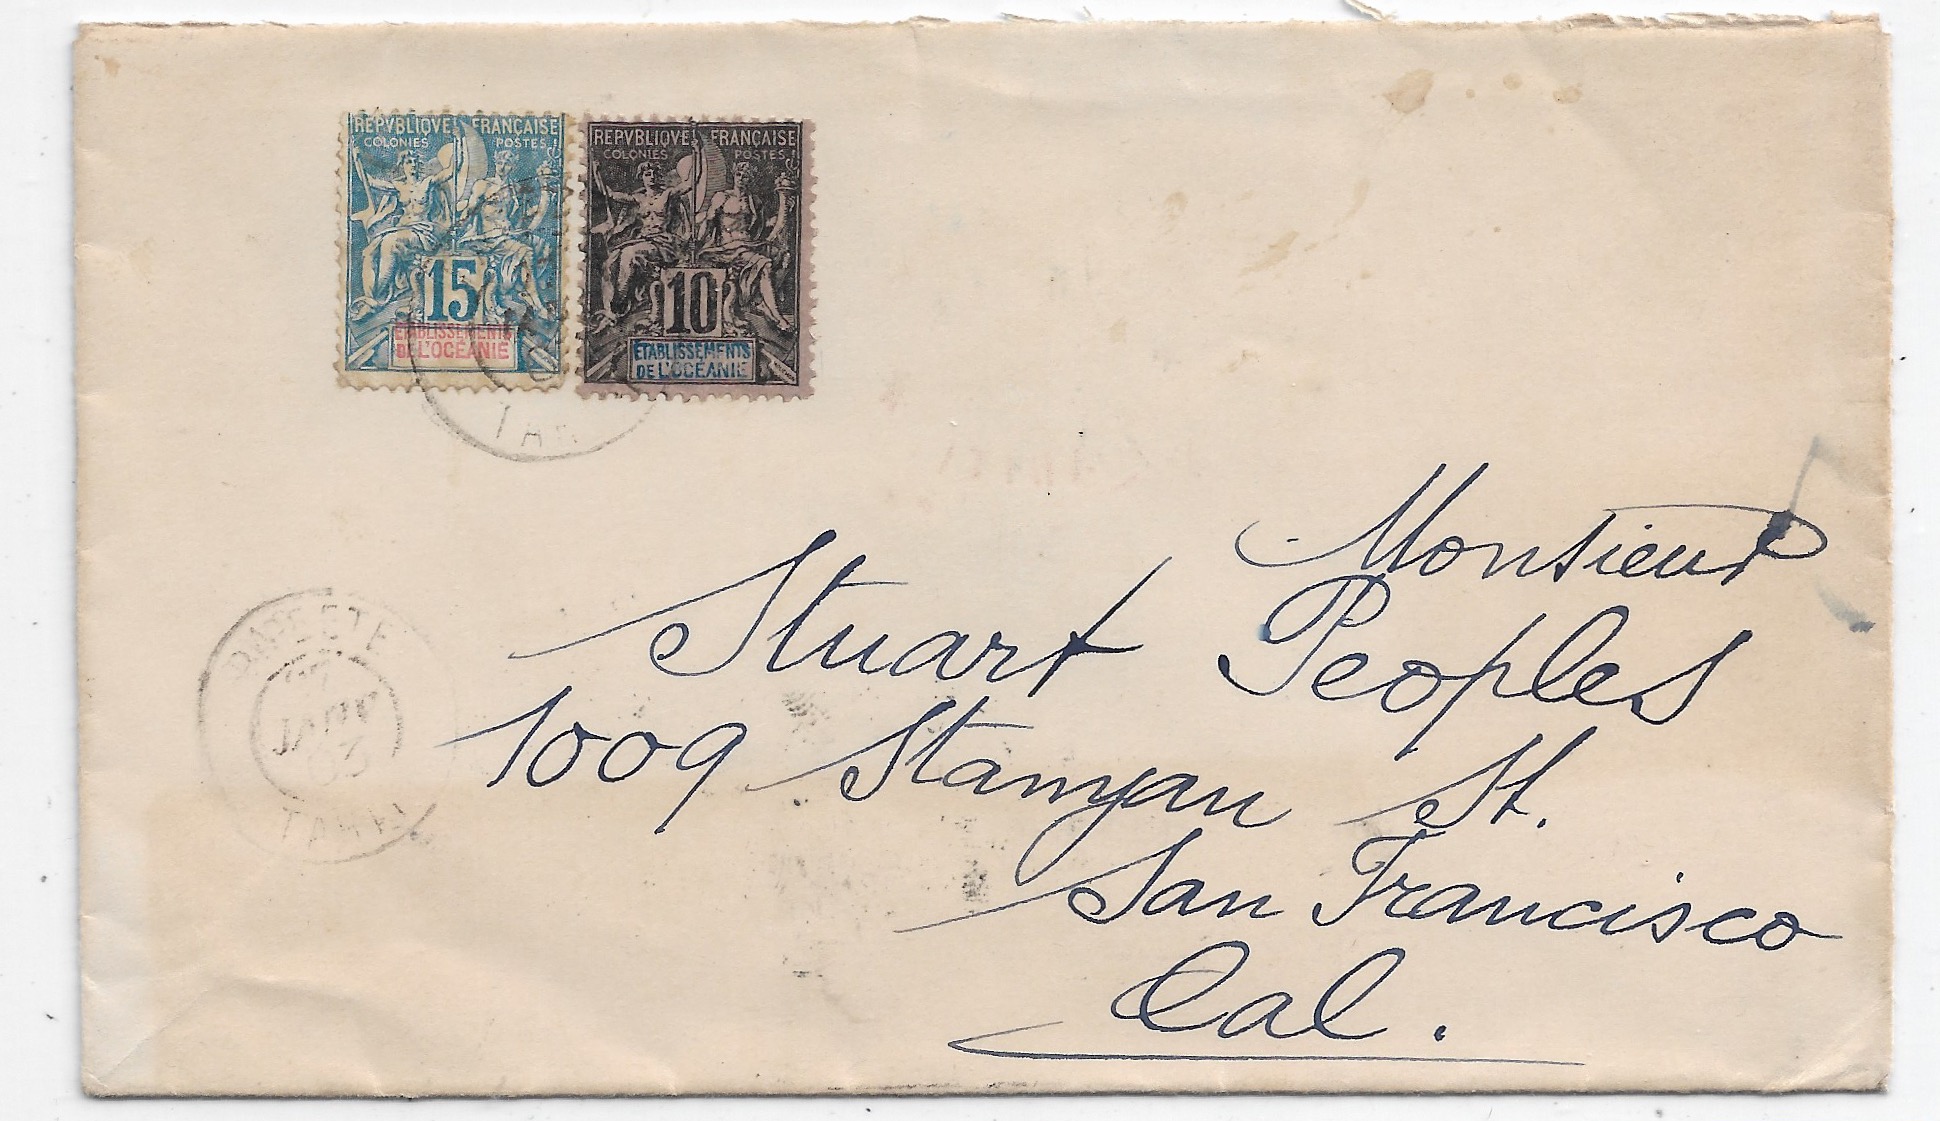 REPVBLIQVE FRANÇAISE
COLONIES POSTES
15
ETABLISSEMENTS
DE L'OCÉANIE
REPVBLIQVE FRANÇAISE
COLONIES POSTES
10
ETABLISSEMENTS
DE L'OCÉANIE
PAPEETE
JANV
03
TAHITI
Monsieur
Stuart Peoples
1009 Stanyan St.
San Francisco
Cal.